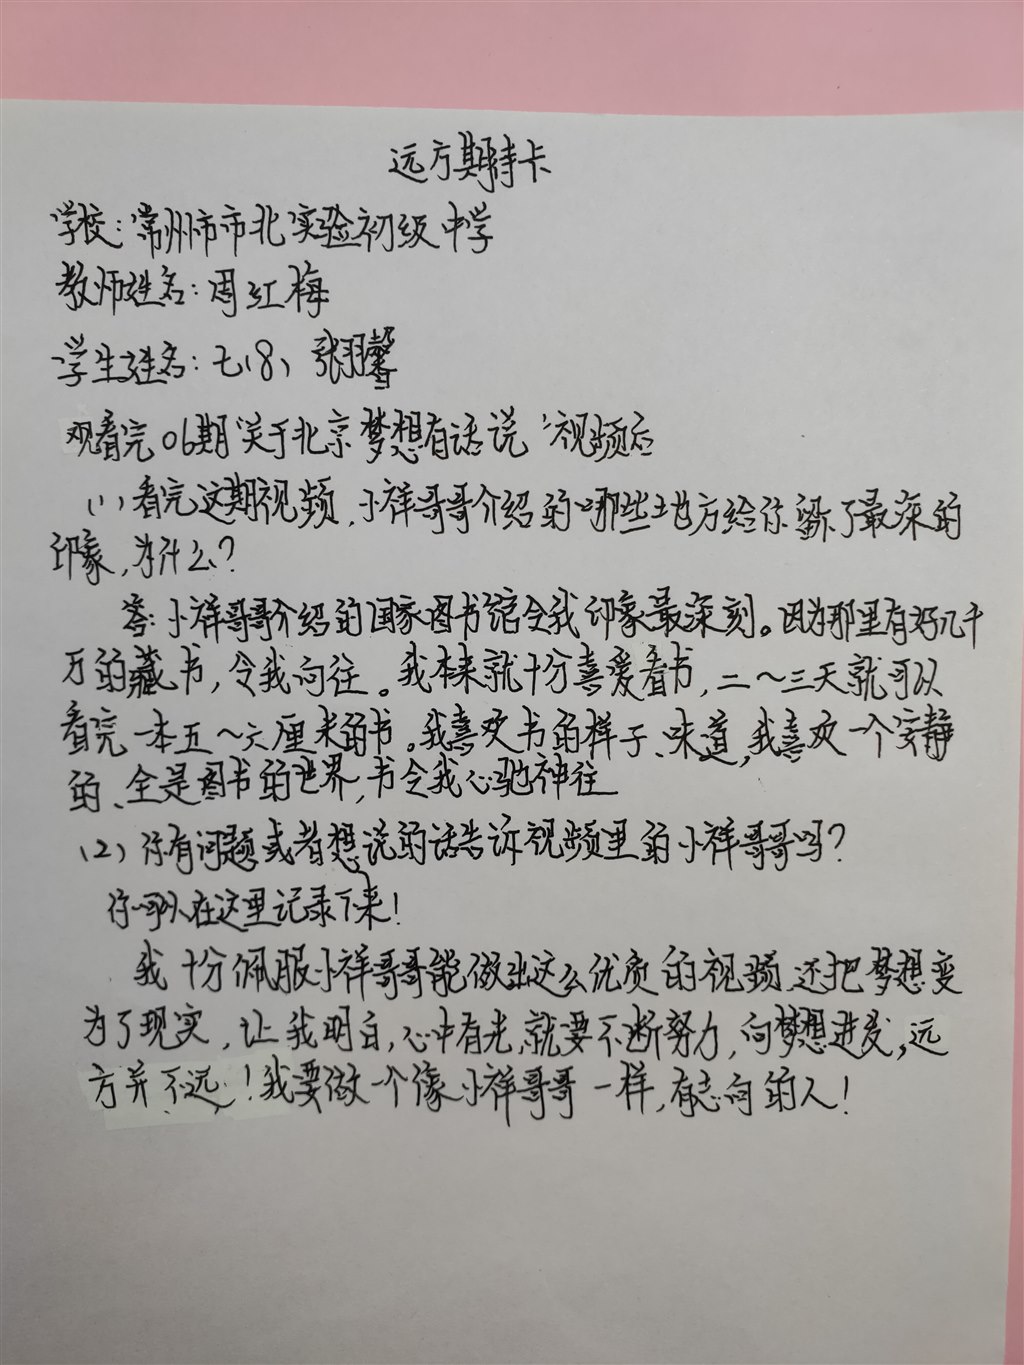 远方期待卡
学校:常州市市北实验初级中学
教师姓名:周红梅
学生姓名:七(8) 张羽馨
观看完06期“关于北京梦想有话说”视频后
(1)看完这期视频,小祥哥哥介绍的哪些地方给你留下了最深的
印象,为什么?
答:小祥哥哥介绍的国家图书馆令我印象最深刻。因为那里有好几千
万的藏书,令我向往。我本来就十分喜爱看书,二~三天就可以
看完一本五~六厘米的书。我喜欢书的样子、味道,我喜欢一个安静
的、全是图书的世界,书令我心驰神往
(2)你有问题或者想说的话告诉视频里的小祥哥哥吗?
你可以在这里记录下来!
我十分佩服小祥哥哥能做出这么优质的视频,还把梦想变
为了现实,让我明白,心中有光,就要不断努力,向梦想进发,远
方并不远!我要做一个像小祥哥哥一样,有志向的人!